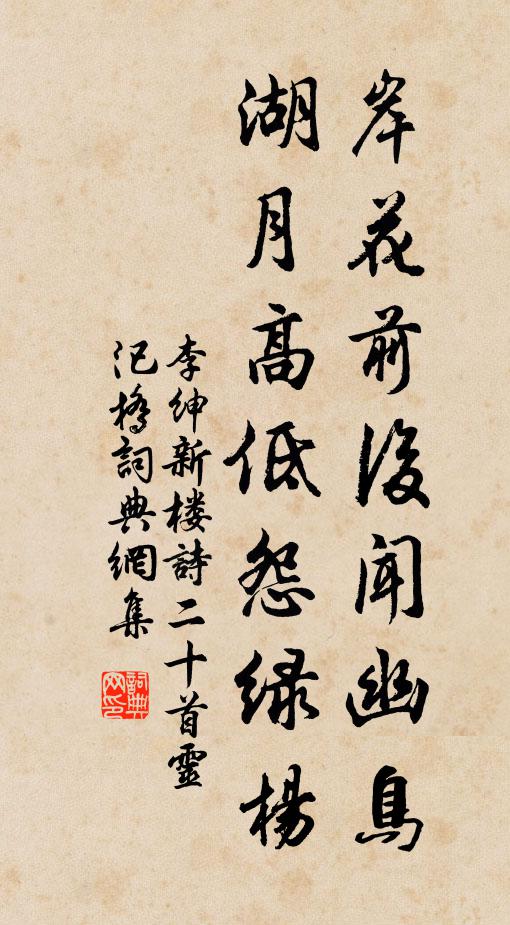 岸花前後聞幽鳥
湖月高低怨绿楊
李紳新楼詩二十首靈
汜橋詞典網集
詞典網印